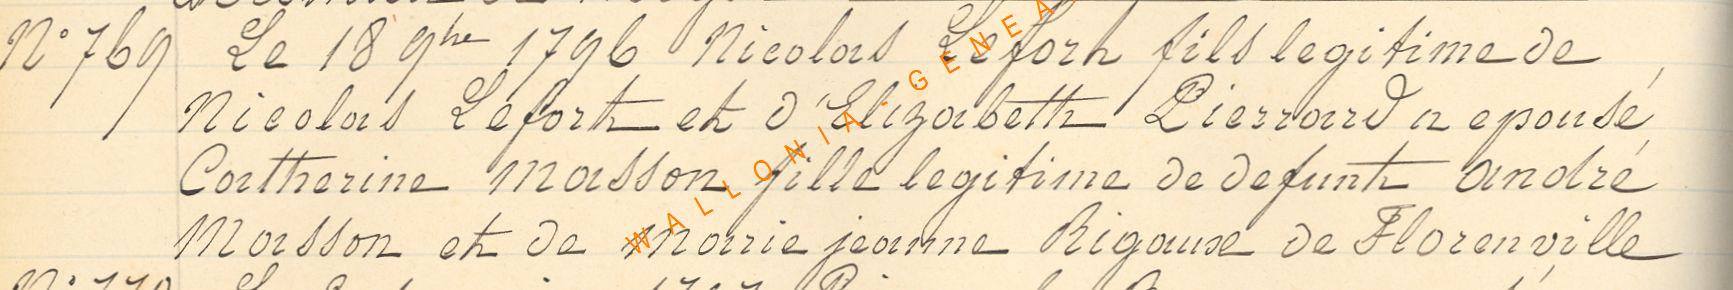 N° 769 Le 18 9bre 1796 Nicolas Lefort fils legitime de
Nicolas Lefort et d'Elizabeth Pierrard a epousé
Catherine Masson fille legitime de defunt andré
Masson et de Marie jeanne Rigaux de Florenville
WALLONIA-GENEA